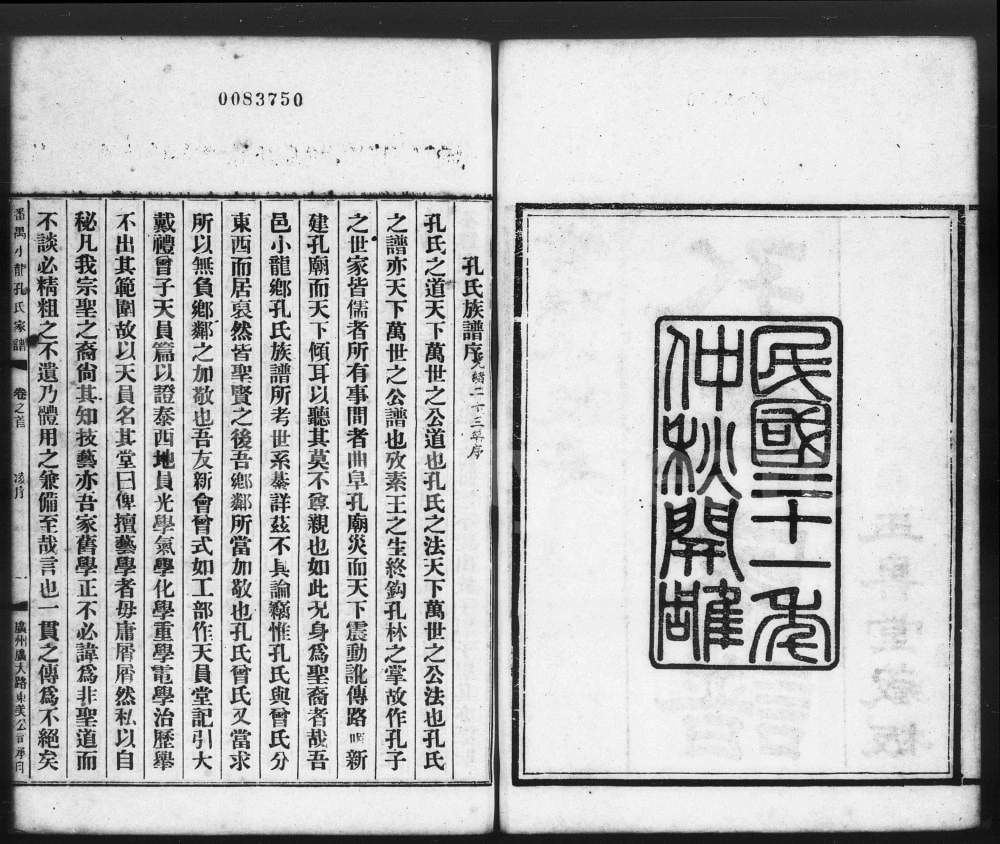 民國二十一年
仲秋開雕
0083750
孔氏族譜序 光緒二十三年序
孔氏之道天下萬世之公道也孔氏之法天下萬世之公法也孔氏
之譜亦天下萬世之公譜也攷素王之生終鈎孔林之掌故作孔子
之世家皆儒者所有事間者曲阜孔廟災而天下震動訛傳路 新
建孔廟而天下傾耳以聽其莫不尊親也如此况身爲聖裔者哉吾
邑小龍鄉孔氏族譜所考世系綦詳茲不具論竊惟孔氏與曾氏分
東西而居裒然皆聖賢之後吾鄉鄰所當加敬也孔氏曾氏又當求
所以無負鄉鄰之加敬也吾友新會曾式如工部作天員堂記引大
戴禮曾子天員篇以證泰西地員光學氣學化學重學電學治歷舉
不出其範圍故以天員名其堂曰俾擅藝學者毋庸屑屑然私以自
秘凡我宗聖之裔尙其知技藝亦吾家舊學正不必諱爲非聖道而
不談必精粗之不遺乃體用之兼備至哉言也一貫之傳爲不絕矣
番禺小龍孔氏家譜 卷之首 一 廣州廣大路東美公司承印